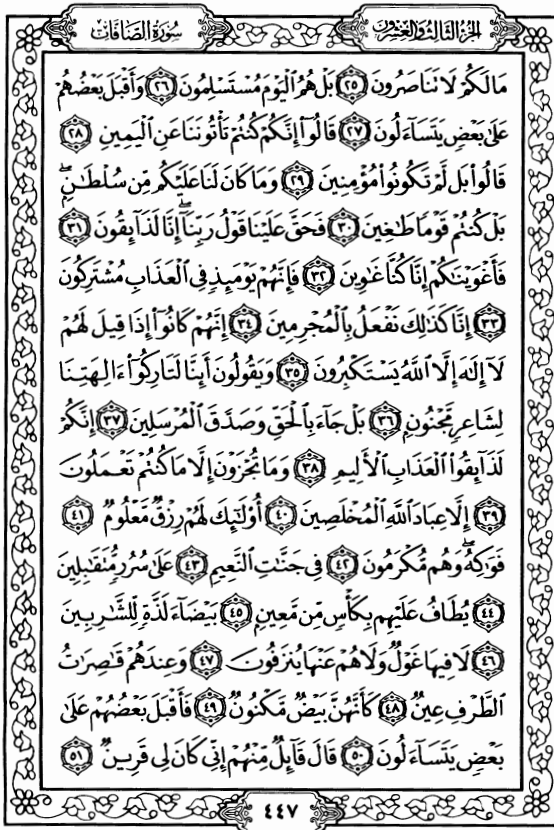 سُورَةُ الصَّافَّاتِ
الجُزْءُ الثَّالِثُ وَالعِشْرُونَ
مَا لَكُمْ لَا تَنَاصَرُونَ ٢٥ بَلْ هُمُ ٱلْيَوْمَ مُسْتَسْلِمُونَ ٢٦ وَأَقْبَلَ بَعْضُهُمْ
عَلَىٰ بَعْضٍ يَتَسَآءَلُونَ ٢٧ قَالُوٓا۟ إِنَّكُمْ كُنتُمْ تَأْتُونَنَا عَنِ ٱلْيَمِينِ ٢٨
قَالُوا۟ بَل لَّمْ تَكُونُوا۟ مُؤْمِنِينَ ٢٩ وَمَا كَانَ لَنَا عَلَيْكُم مِّن سُلْطَـٰنٍۭ ۖ
بَلْ كُنتُمْ قَوْمًا طَـٰغِينَ ٣٠ فَحَقَّ عَلَيْنَا قَوْلُ رَبِّنَآ ۖ إِنَّا لَذَآئِقُونَ ٣١
فَأَغْوَيْنَـٰكُمْ إِنَّا كُنَّا غَـٰوِينَ ٣٢ فَإِنَّهُمْ يَوْمَئِذٍ فِى ٱلْعَذَابِ مُشْتَرِكُونَ
٣٣ إِنَّا كَذَٰلِكَ نَفْعَلُ بِٱلْمُجْرِمِينَ ٣٤ إِنَّهُمْ كَانُوٓا۟ إِذَا قِيلَ لَهُمْ
لَآ إِلَـٰهَ إِلَّا ٱللَّهُ يَسْتَكْبِرُونَ ٣٥ وَيَقُولُونَ أَئِنَّا لَتَارِكُوٓا۟ ءَالِهَتِنَا
لِشَاعِرٍ مَّجْنُونٍۭ ٣٦ بَلْ جَآءَ بِٱلْحَقِّ وَصَدَّقَ ٱلْمُرْسَلِينَ ٣٧ إِنَّكُمْ
لَذَآئِقُوا۟ ٱلْعَذَابِ ٱلْأَلِيمِ ٣٨ وَمَا تُجْزَوْنَ إِلَّا مَا كُنتُمْ تَعْمَلُونَ
٣٩ إِلَّا عِبَادَ ٱللَّهِ ٱلْمُخْلَصِينَ ٤٠ أُو۟لَـٰٓئِكَ لَهُمْ رِزْقٌ مَّعْلُومٌ ٤١
فَوَٰكِهُ ۖ وَهُم مُّكْرَمُونَ ٤٢ فِى جَنَّـٰتِ ٱلنَّعِيمِ ٤٣ عَلَىٰ سُرُرٍ مُّتَقَـٰبِلِينَ
٤٤ يُطَافُ عَلَيْهِم بِكَأْسٍ مِّن مَّعِينٍۭ ٤٥ بَيْضَآءَ لَذَّةٍ لِّلشَّـٰرِبِينَ
٤٦ لَا فِيهَا غَوْلٌ وَلَا هُمْ عَنْهَا يُنزَفُونَ ٤٧ وَعِندَهُمْ قَـٰصِرَٰتُ
ٱلطَّرْفِ عِينٌ ٤٨ كَأَنَّهُنَّ بَيْضٌ مَّكْنُونٌ ٤٩ فَأَقْبَلَ بَعْضُهُمْ عَلَىٰ
بَعْضٍ يَتَسَآءَلُونَ ٥٠ قَالَ قَآئِلٌ مِّنْهُمْ إِنِّى كَانَ لِى قَرِينٌ ٥١
٤٤٧